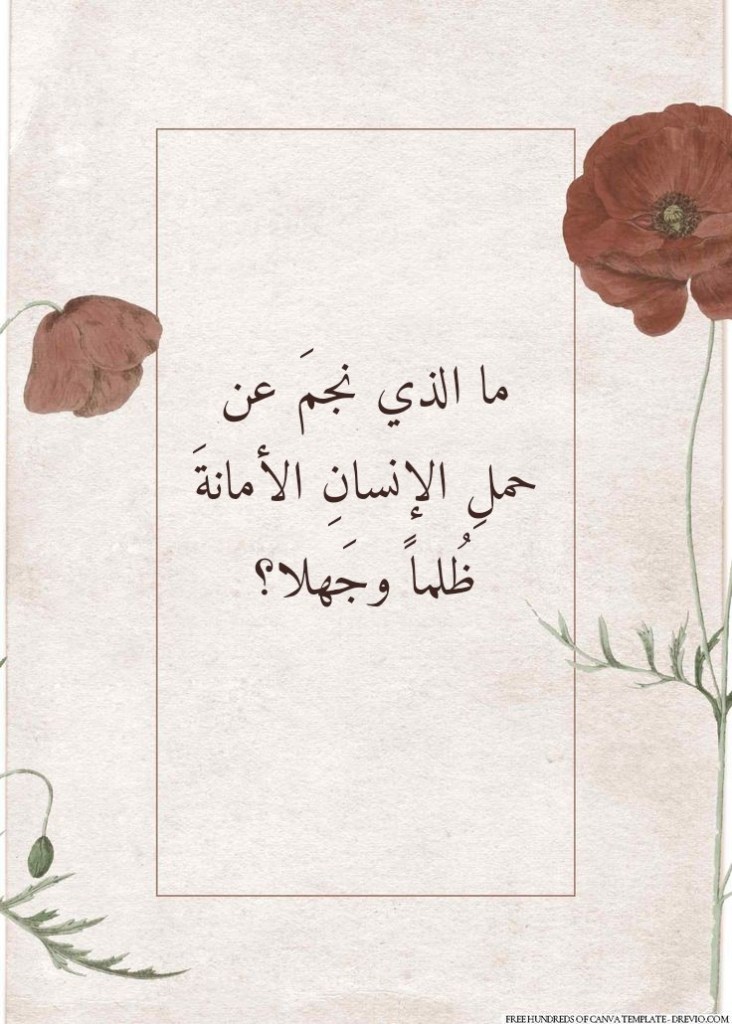 ما الذي نجمَ عن
حملِ الإنسانِ الأمانةَ
ظُلماً وجَهلا؟
FREE HUNDREDS OF CANVA TEMPLATE - DREVIO.COM